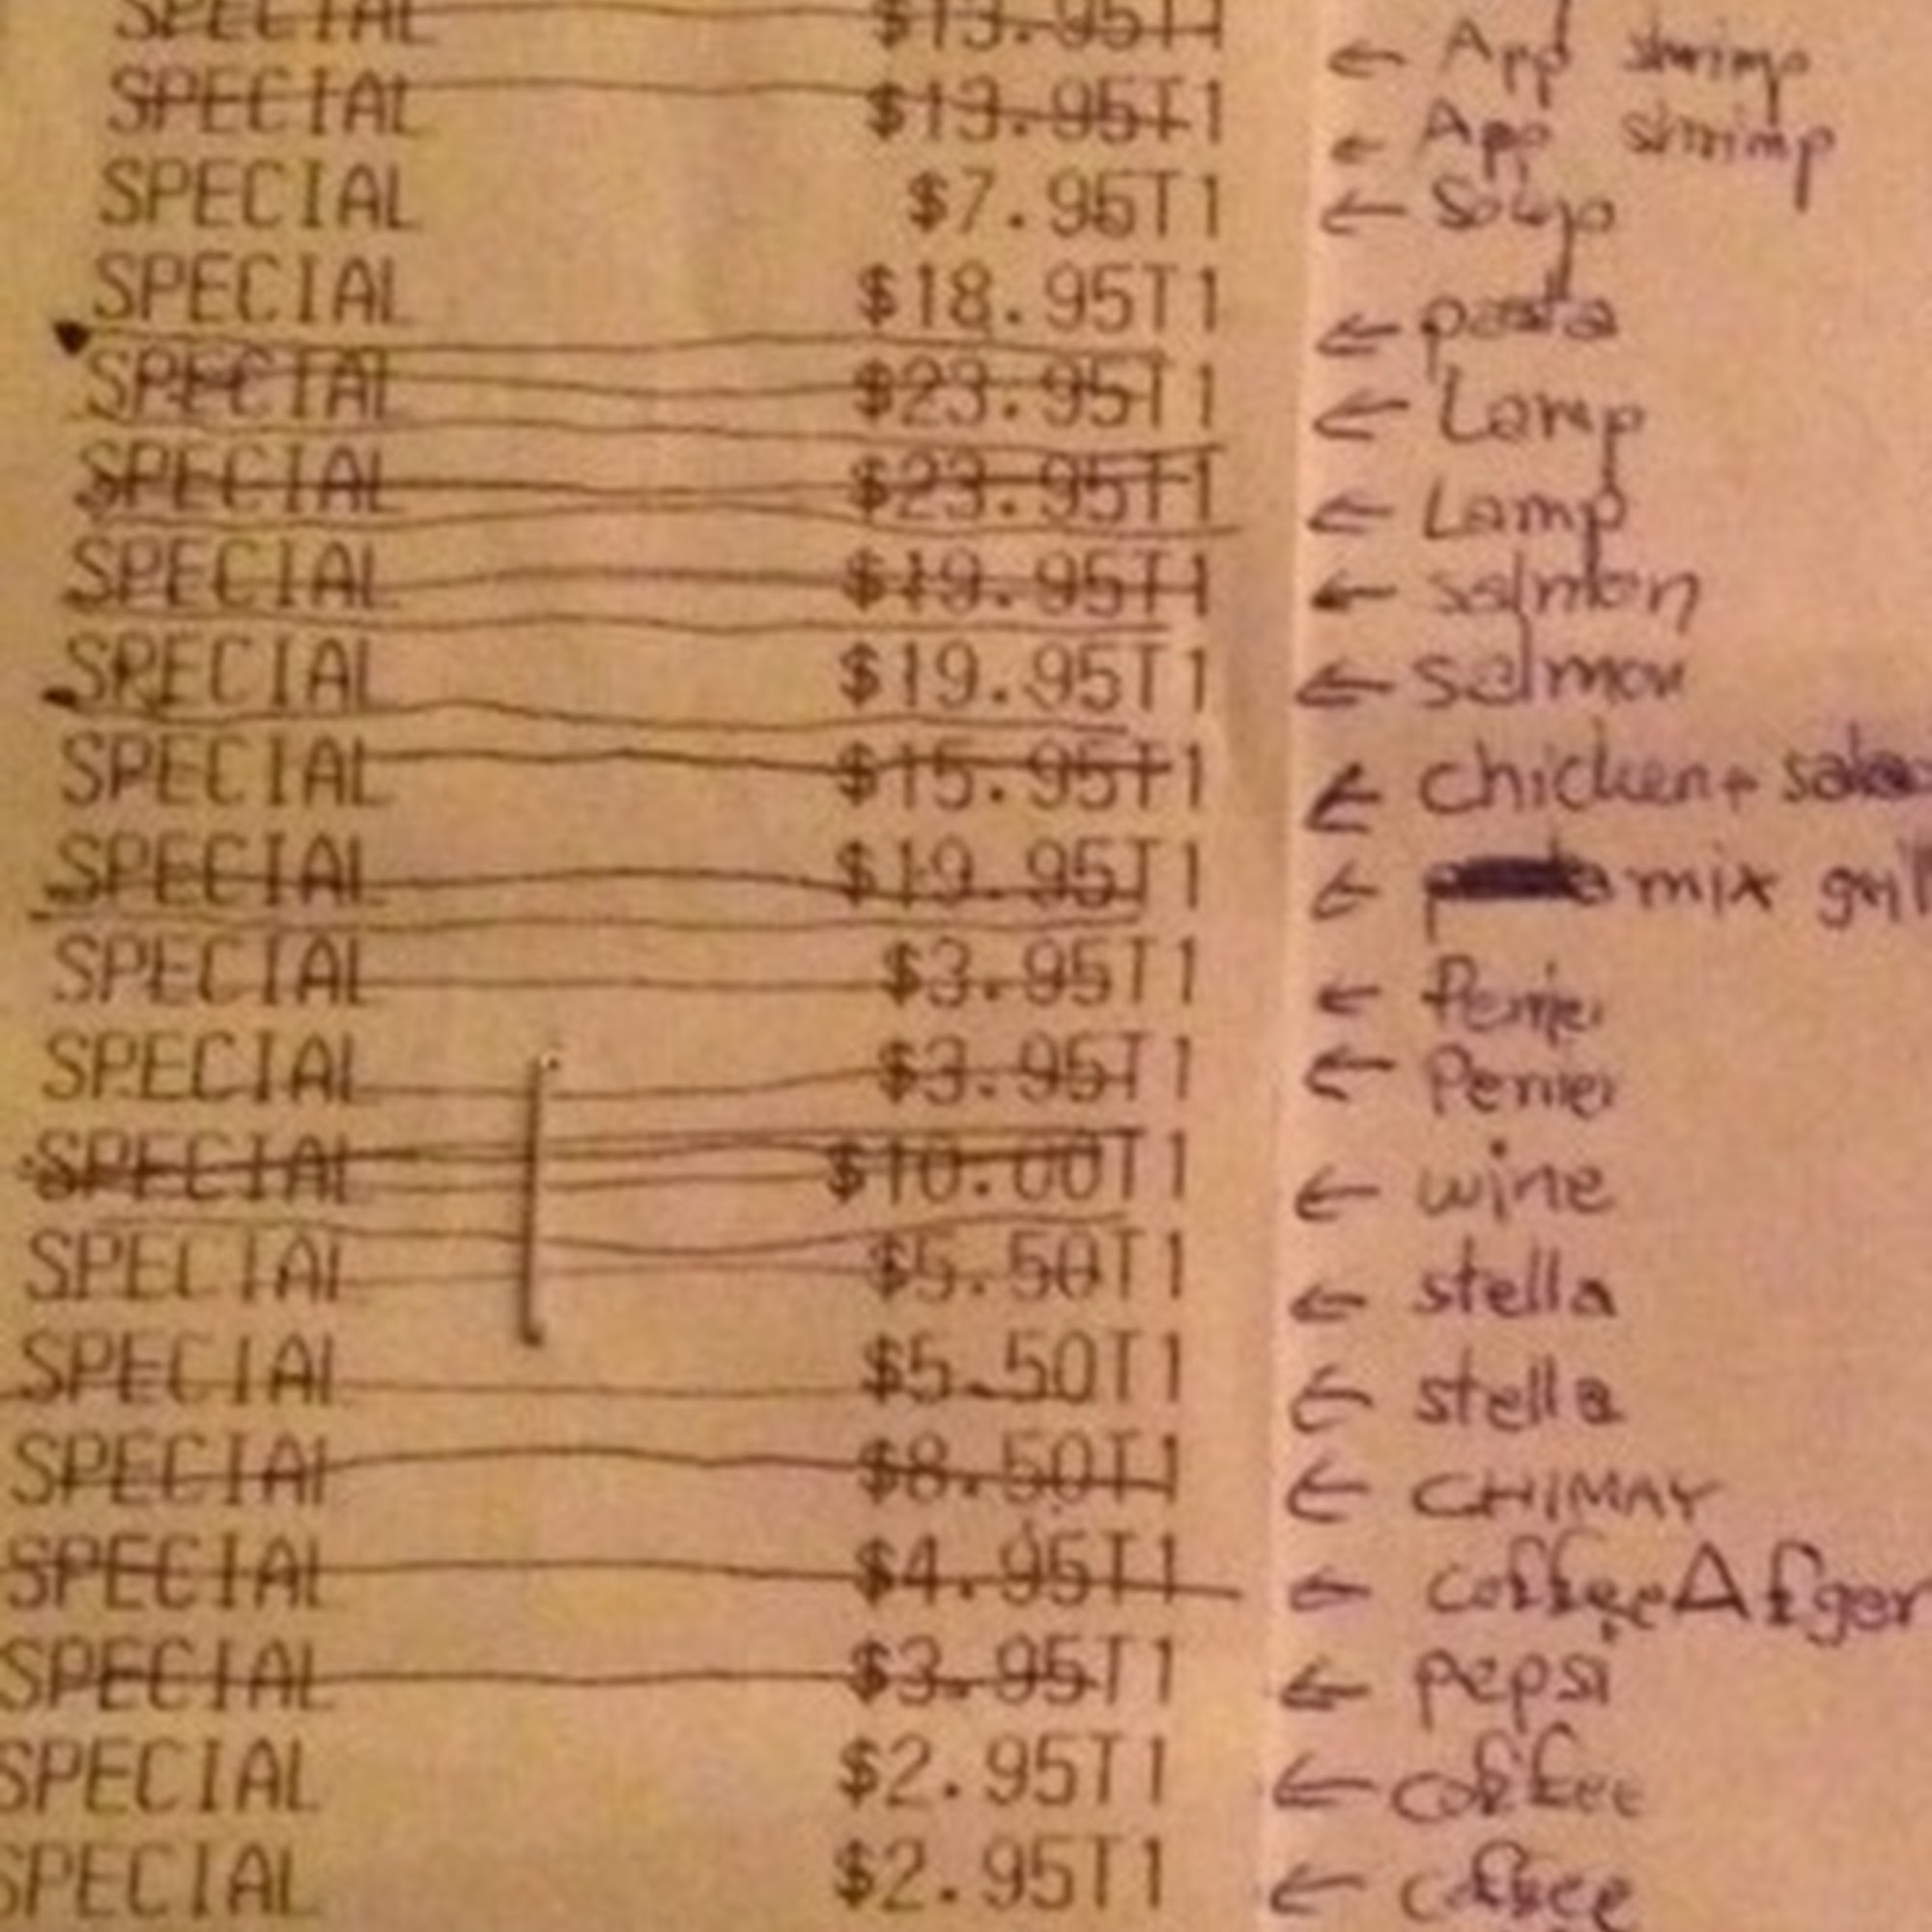 SPECIAL $13.95T1 ← App shrimp
SPECIAL $13.95T1 ← App shrimp
SPECIAL $7.95T1 ← Soup
SPECIAL $18.95T1 ← pasta
SPECIAL $23.95T1 ← Lamp
SPECIAL $23.95T1 ← Lamp
SPECIAL $19.95T1 ← salmon
SPECIAL $19.95T1 ← salmon
SPECIAL $15.95T1 ← chicken + sala
SPECIAL $19.95T1 ← mix grill
SPECIAL $3.95T1 ← Perrier
SPECIAL $3.95T1 ← Perrier
SPECIAL $10.00T1 ← wine
SPECIAL $5.50T1 ← stella
SPECIAL $5.50T1 ← stella
SPECIAL $8.50T1 ← CHIMAY
SPECIAL $4.95T1 ← coffee
SPECIAL $3.95T1 ← pepsi
SPECIAL $2.95T1 ← coffee
SPECIAL $2.95T1 ← coffee